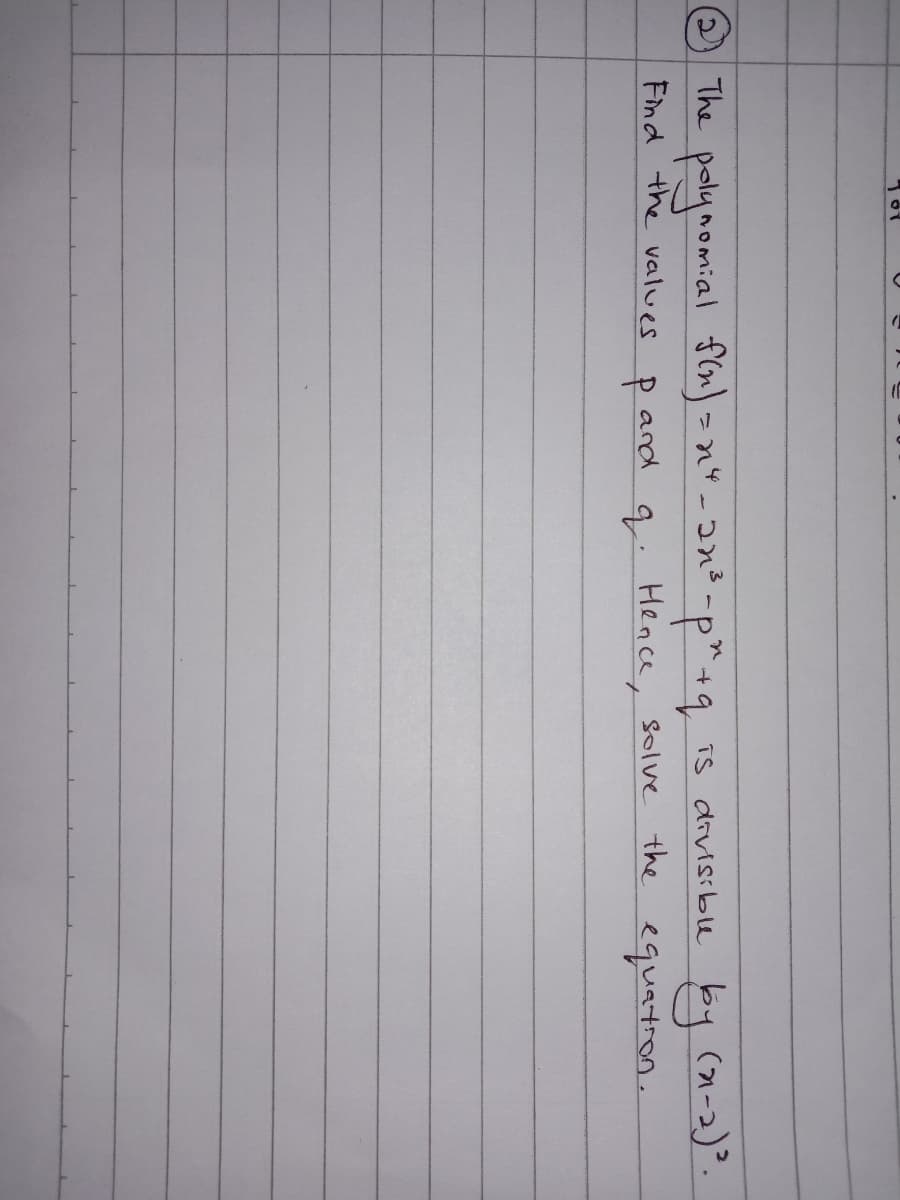 ② The polynomial f(x) = x⁴ - 2x³ - pˣ + q is divisible by (x-2)².
Find the values p and q. Hence, solve the equation.